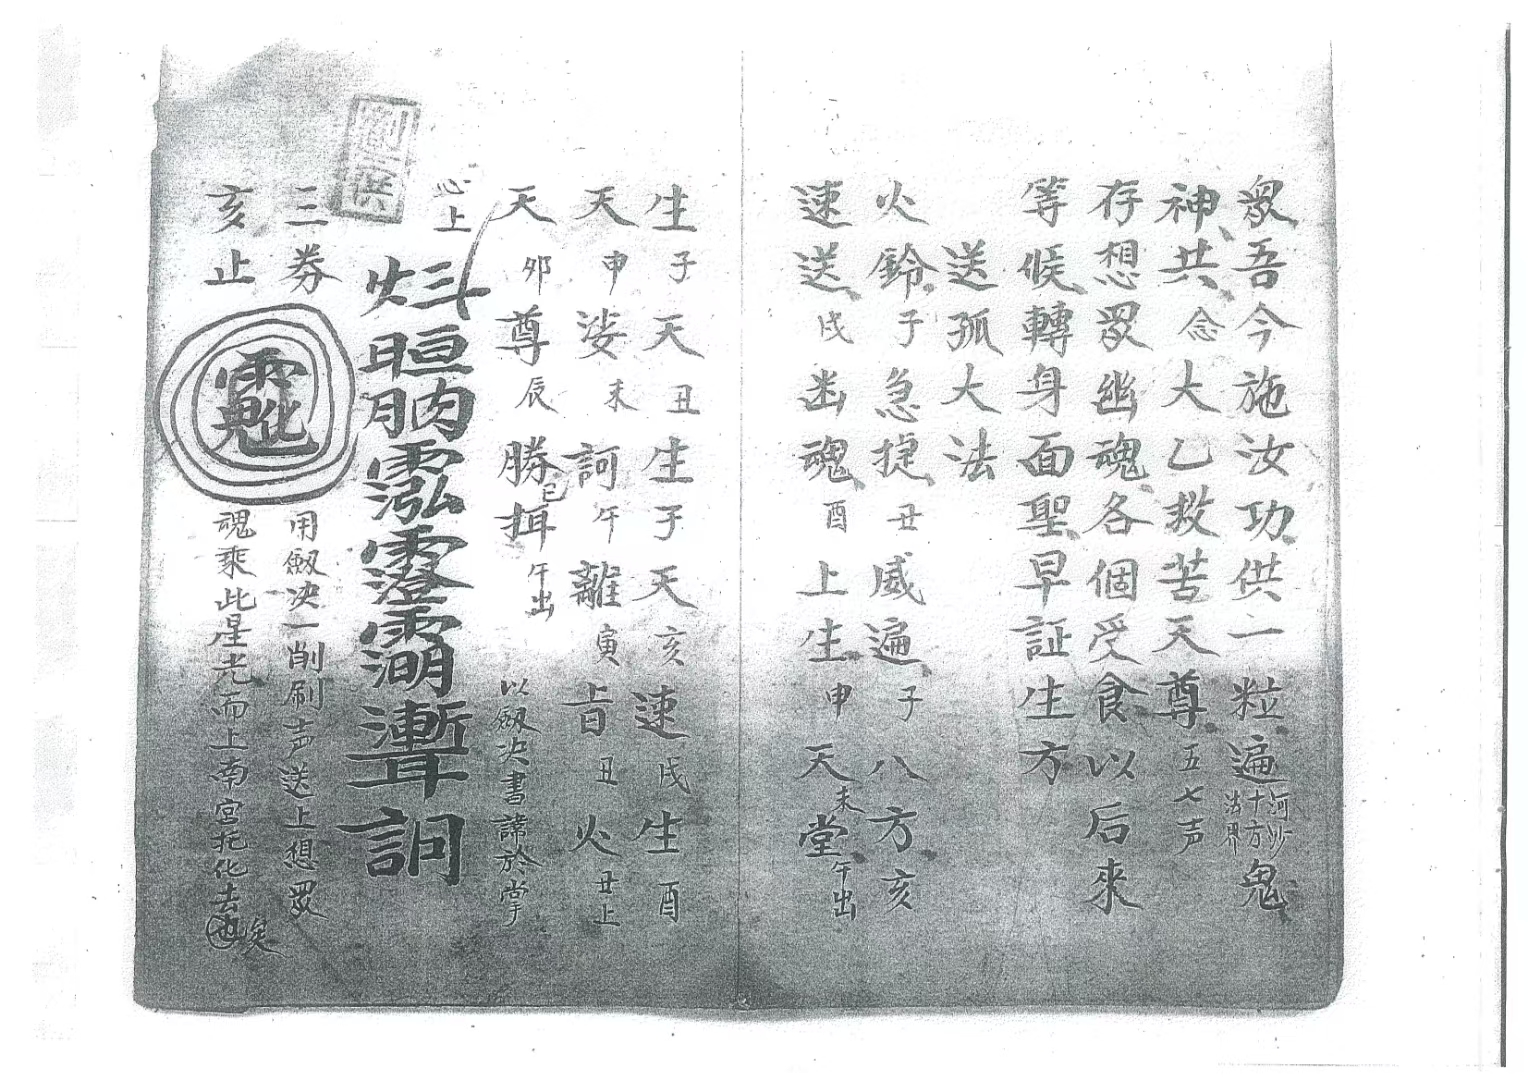 眾吾今施汝功供一粒遍河沙十方法界鬼
神共念大乙救苦天尊五七声
存想眾幽魂各個受食以后來
等候轉身面聖早証生方
送孤大法
火鈴子急捷丑威遍子八方亥
速送戌幽魂酉上生申天未堂午出
生子天丑生子天亥速戌生酉
天申娑未訶午離寅旨丑火丑上
天卯尊辰勝巳揖午出以劔决書諱於掌
心上
三券用劔决一削刷声送上想眾
亥止魂乘此星光而上南宮托化去也